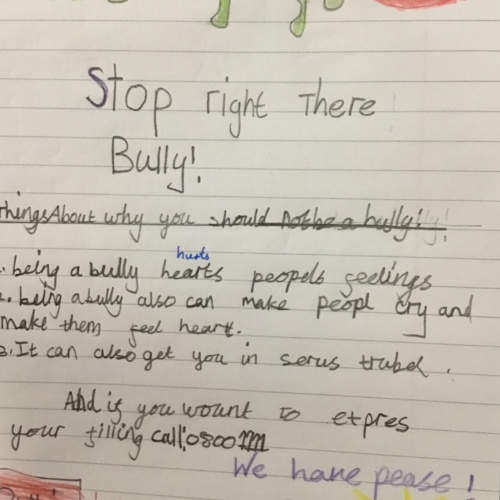 Stop right There
Bully!
Things About why you should not be a bully!
hurts
1. being a bully hearts peopels feelings
2. being a bully also can make peopl cry and
make them feel heart.
3. It can also get you in serus trubel.
And if you wount to etpres
your filling call: 0800
We have pease!